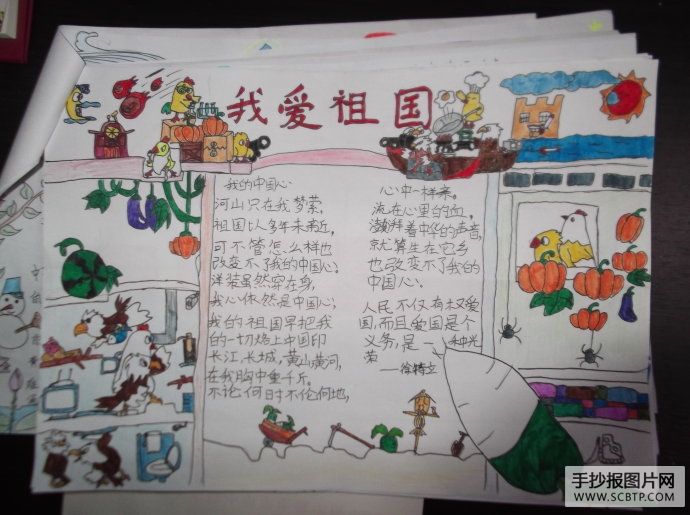 我爱祖国
我的中国心
河山只在我梦萦,
祖国以多年未
可不管怎么样也
改变不了我的中国心。
洋装虽然穿在身,
我心体然是中国心,
我的祖国早把我
的一切烙上中国印
长江,长城,黄山黄河,
在我胸中重千斤。
不论何时不伦何地,
心中一样亲。
流在心里的血,
澎湃着中华的声音,
就算生在它乡
也改变不了我的
中国心。
人民不仅有权爱
国,而且爱国是个
义务,是一种光
荣
——徐特立
手抄报图片网
WWW.SCBTP.COM